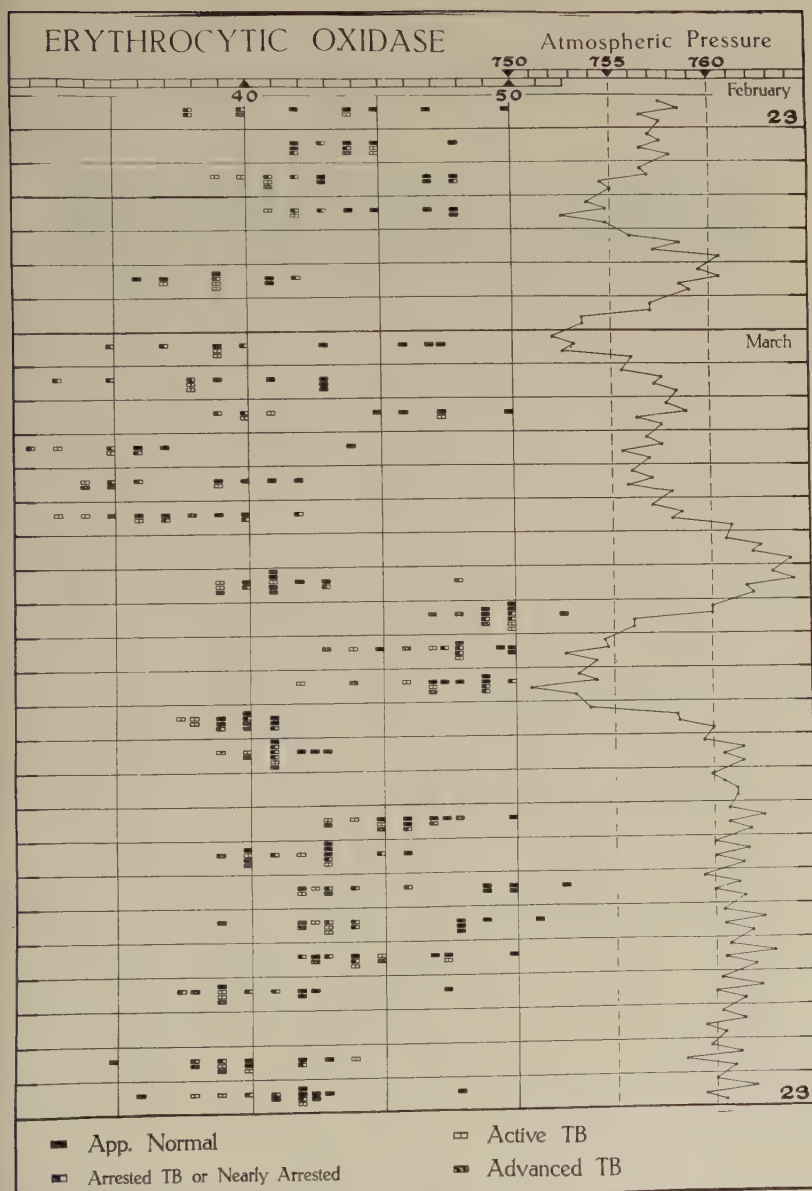 ERYTHROCYTIC OXIDASE
Atmospheric Pressure
750 755 760
40 50
February
23
March
23
App. Normal
Active TB
Arrested TB or Nearly Arrested
Advanced TB